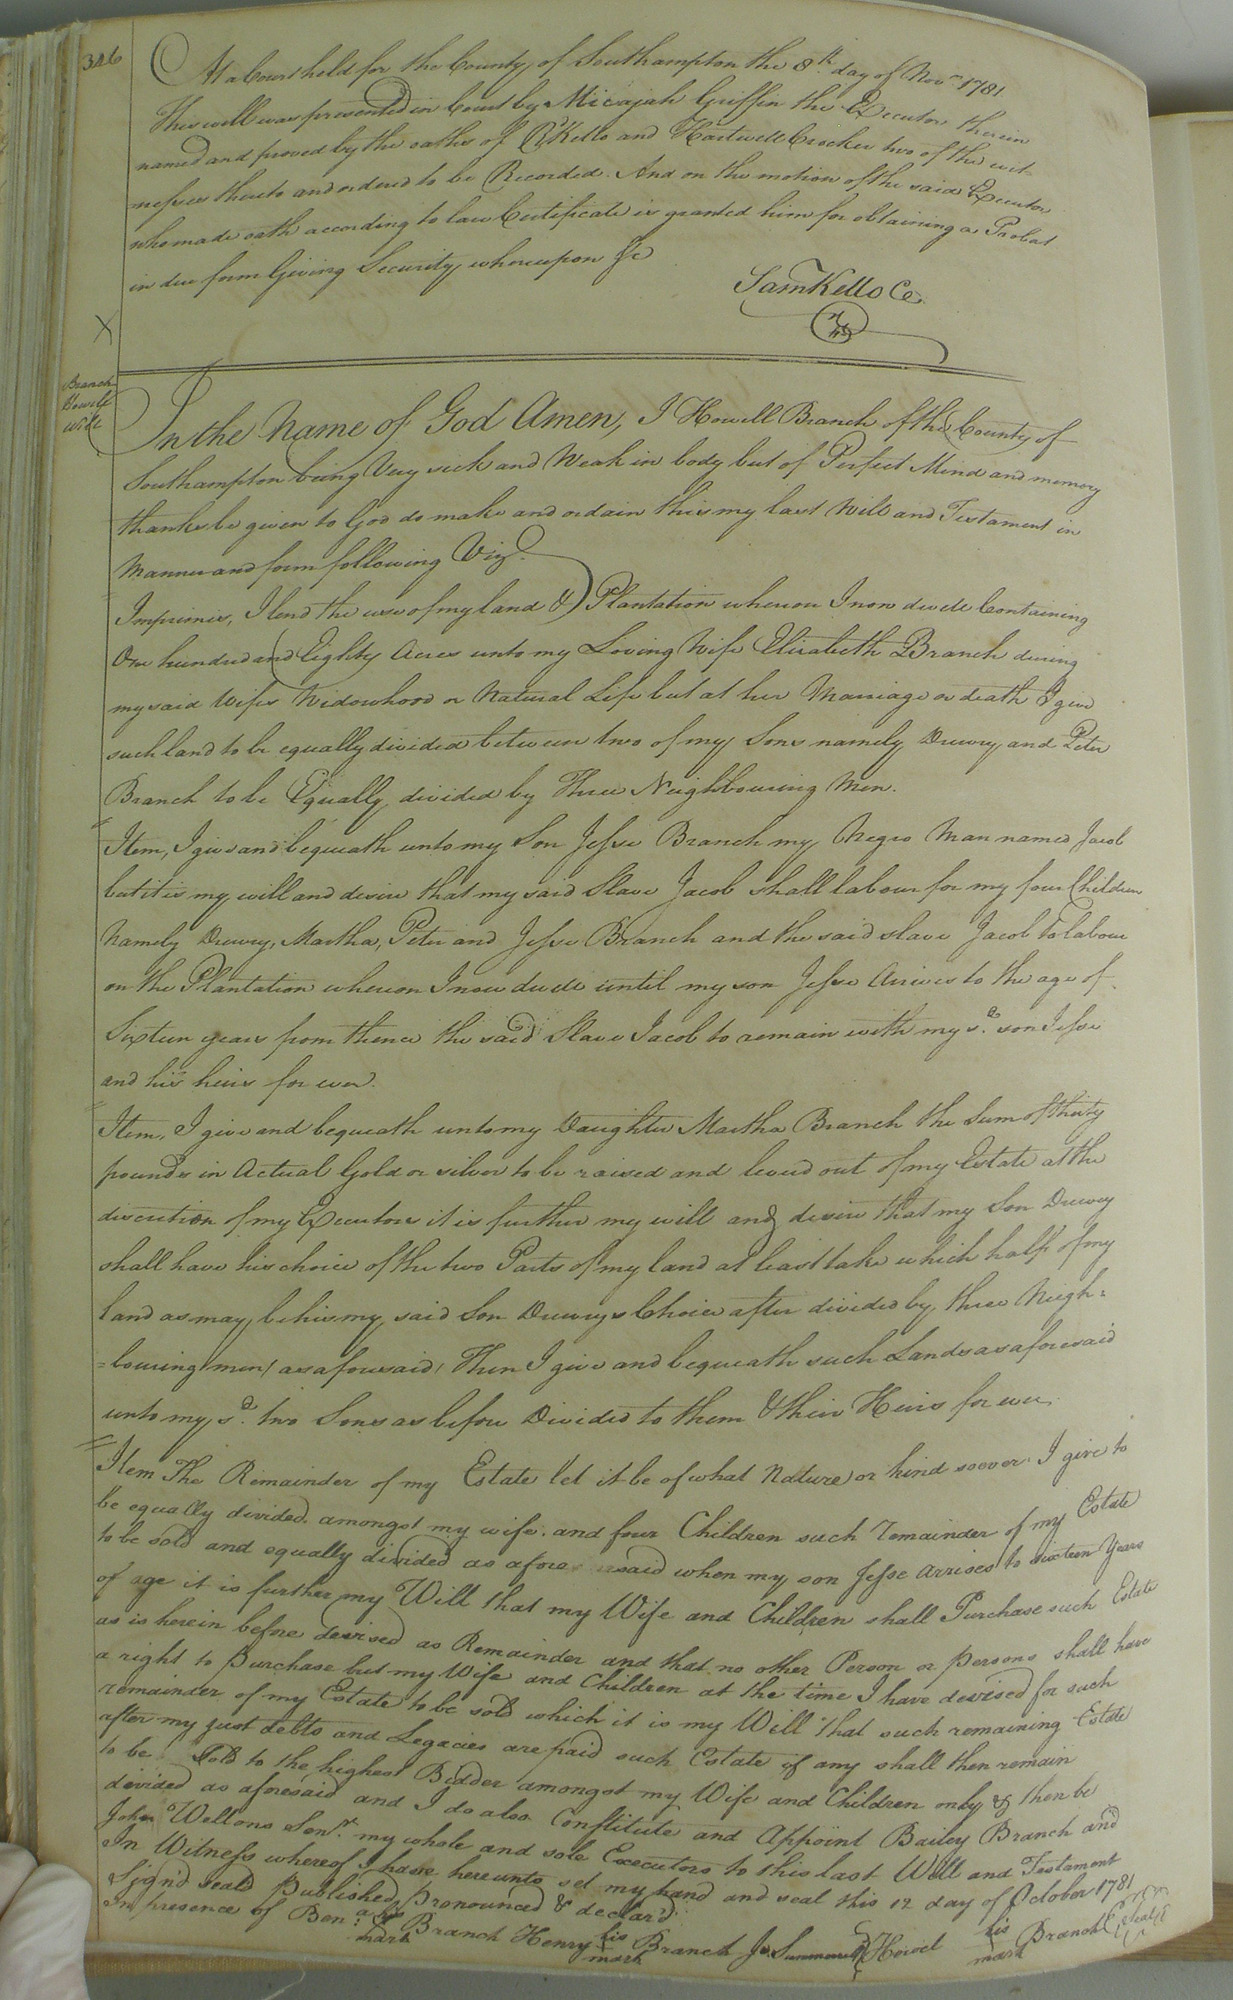 346
At a Court held for the County of Southampton the 8th day of Novr 1781
This will was presented in Court by Micajah Griffin the Executor therein
named and proved by the oaths of Kello and Hartwell Crocker two of the wit-
-nesses thereto and ordered to be Recorded. And on the motion of the said Executor
who made oath according to law Certificate is granted him for obtaining a Probat
in due form Giving Security whereupon &c
Saml Kello Ce
X
Branch
Howell
Will
In the Name of God Amen, I Howell Branch of the County of
Southampton being Very sick and Weak in body but of Perfect Mind and memory
thanks be given to God do make and ordain this my last Will and Testament in
Manner and form following Viz.
Imprimis, I lend the use of my land & Plantation whereon I now dwell Containing
One hundred and Eighty Acres unto my Loving Wife Elizabeth Branch during
my said Wifes Widowhood or Natural Life but at her Marriage or death I give
such land to be equally divided between two of my Sons namely Drewry and Peter
Branch to be Equally divided by Three Neighbouring Men.
Item, I give and bequeath unto my Son Jesse Branch my Negro Man named Jacob
but it is my will and desire that my said Slave Jacob shall labour for my four Children
Namely Drewry, Martha, Peter and Jesse Branch and the said slave Jacob to labour
on the Plantation whereon I now dwell until my son Jesse Arives to the age of
Sixteen years from thence the said Slave Jacob to remain with my sd. son Jesse
and his heirs for ever.
Item, I give and bequeath unto my Daughter Martha Branch the Sum of thirty
pounds in Actual Gold or silver to be raised and levied out of my Estate at the
discretion of my Executors it is further my will and desire that my Son Drewry
shall have his choice of the two Parts of my land at least take which half of my
land as may be his my said Son Drewrys Choice after divided by three Neigh=
=bouring men/ as aforesaid/ Then I give and bequeath such Lands as aforesaid
unto my sd. two Sons as before Divided to them & their Heirs for ever.
Item The Remainder of my Estate let it be of what Nature or kind soever I give to
be equally divided amongst my wife and four Children such remainder of my Estate
to be sold and equally divided as afore said when my son Jesse arrises to sixteen Years
of age it is further my Will that my Wife and Children shall Purchase such Estate
as is herein before devised as Remainder and that no other Person or persons shall have
a right to Purchase but my Wife and Children at the time I have devised for such
remainder of my Estate to be sold which it is my Will that such remaining Estate
after my just debts and Legacies are paid such Estate if any shall then remain
to be Sold to the highest Bidder amongst my Wife and Children only & then be
divided as aforesaid and I do also Constitute and Appoint Bailey Branch and
John Wellons Senr. my whole and sole Executors to this last Will and Testament
In Witness whereof I have hereunto set my hand and seal this 12 day of October 1781
Sign'd seald Published, pronounced & declar'd
In presence of Ben: his mark Branch Henry his mark Branch Howel his mark Branch Seal